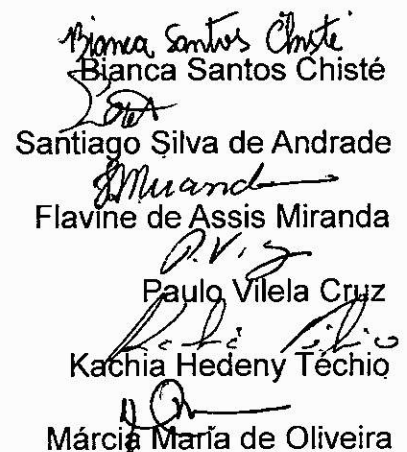 Bianca Santos Chisté
Bianca Santos Chisté
Santiago Silva de Andrade
Miranda
Flavine de Assis Miranda
P. V.
Paulo Vilela Cruz
Kachia Hedeny Téchio
Márcia Maria de Oliveira